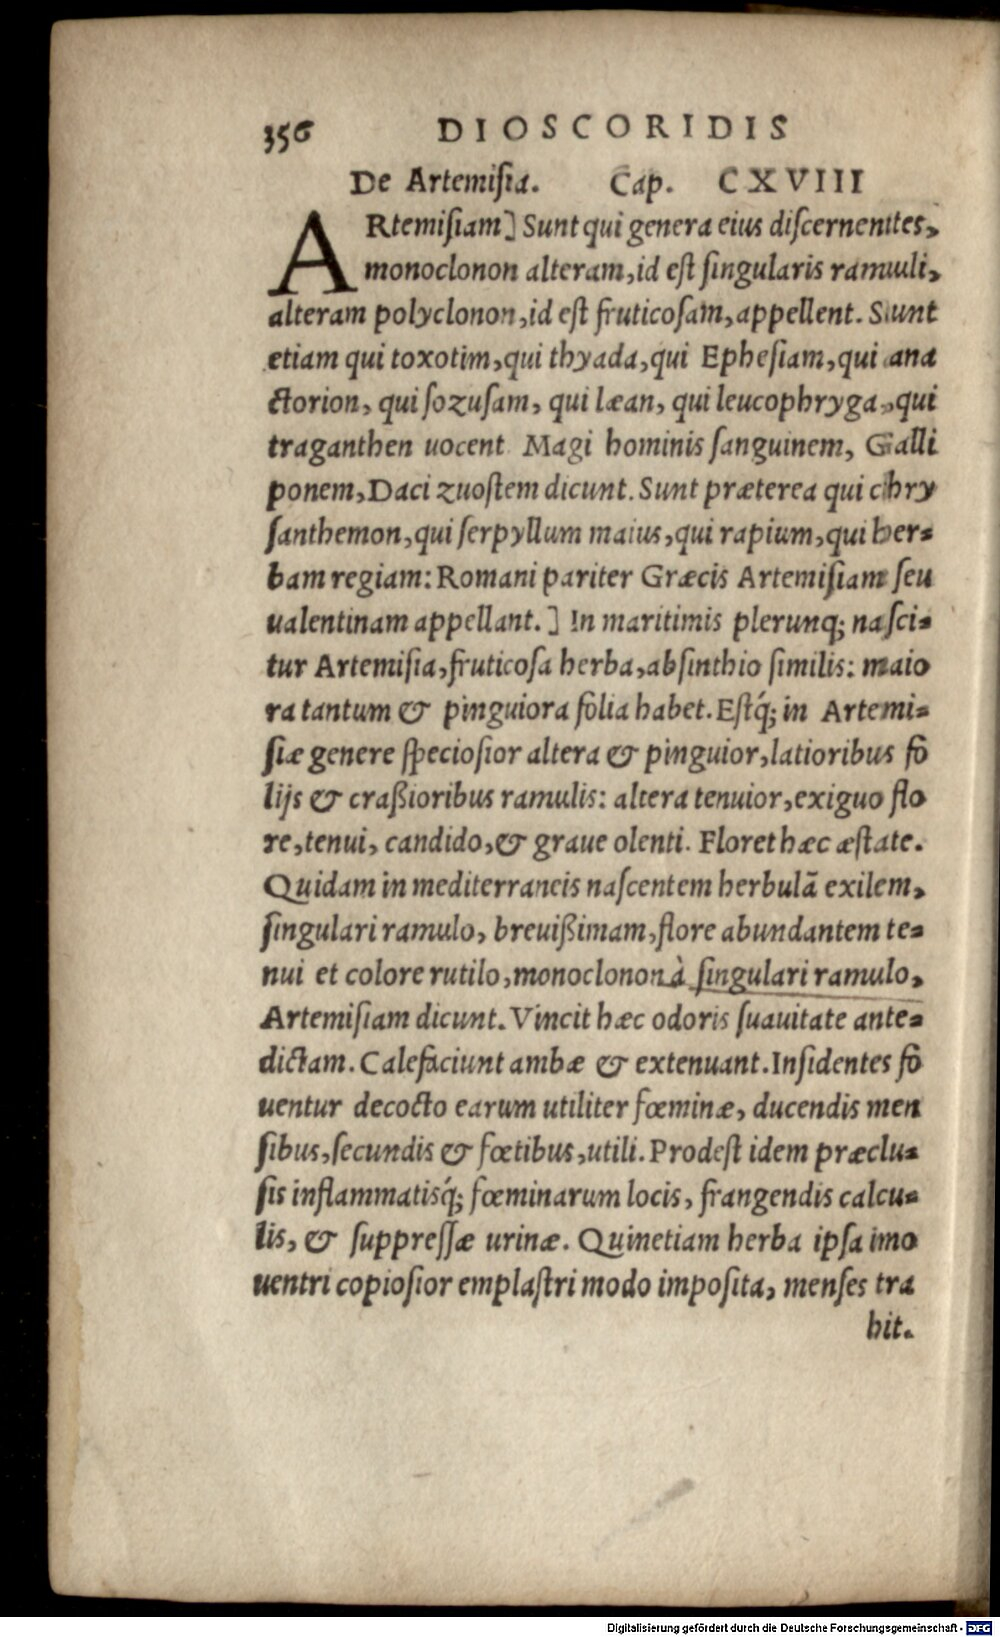 356 DIOSCORIDIS
De Artemisia. Cap. CXVIII
ARtemisiam] Sunt qui genera eius discernentes,
monoclonon alteram, id est singularis ramuli,
alteram polyclonon, id est fruticosam, appellent. Sunt
etiam qui toxotim, qui thyada, qui Ephesiam, qui ana
ctorion, qui sozusam, qui læan, qui leucophryga, qui
traganthen uocent Magi hominis sanguinem, Galli
ponem, Daci zuostem dicunt. Sunt præterea qui chry
santhemon, qui serpyllum maius, qui rapium, qui her-
bam regiam: Romani pariter Græcis Artemisiam seu
ualentinam appellant.] In maritimis plerunq; nasci-
tur Artemisia, fruticosa herba, absinthio similis: maio
ra tantum & pinguiora folia habet. Estq́; in Artemi-
siæ genere speciosior altera & pinguior, latioribus fo
lijs & craßioribus ramulis: altera tenuior, exiguo flo
re, tenui, candido, & graue olenti. Floret hæc æstate.
Quidam in mediterraneis nascentem herbulã exilem,
singulari ramulo, breuißimam, flore abundantem te-
nui et colore rutilo, monoclonon à singulari ramulo,
Artemisiam dicunt. Vincit hæc odoris suauitate ante-
dictam. Calefaciunt ambæ & extenuant. Insidentes fo
uentur decocto earum utiliter fœminæ, ducendis men
sibus, secundis & fœtibus, utili. Prodest idem præclu-
sis inflammatisq́; fœminarum locis, frangendis calcu-
lis, & suppressæ urinæ. Quinetiam herba ipsa imo
uentri copiosior emplastri modo imposita, menses tra
hit.
Digitalisierung gefördert durch die Deutsche Forschungsgemeinschaft - DFG